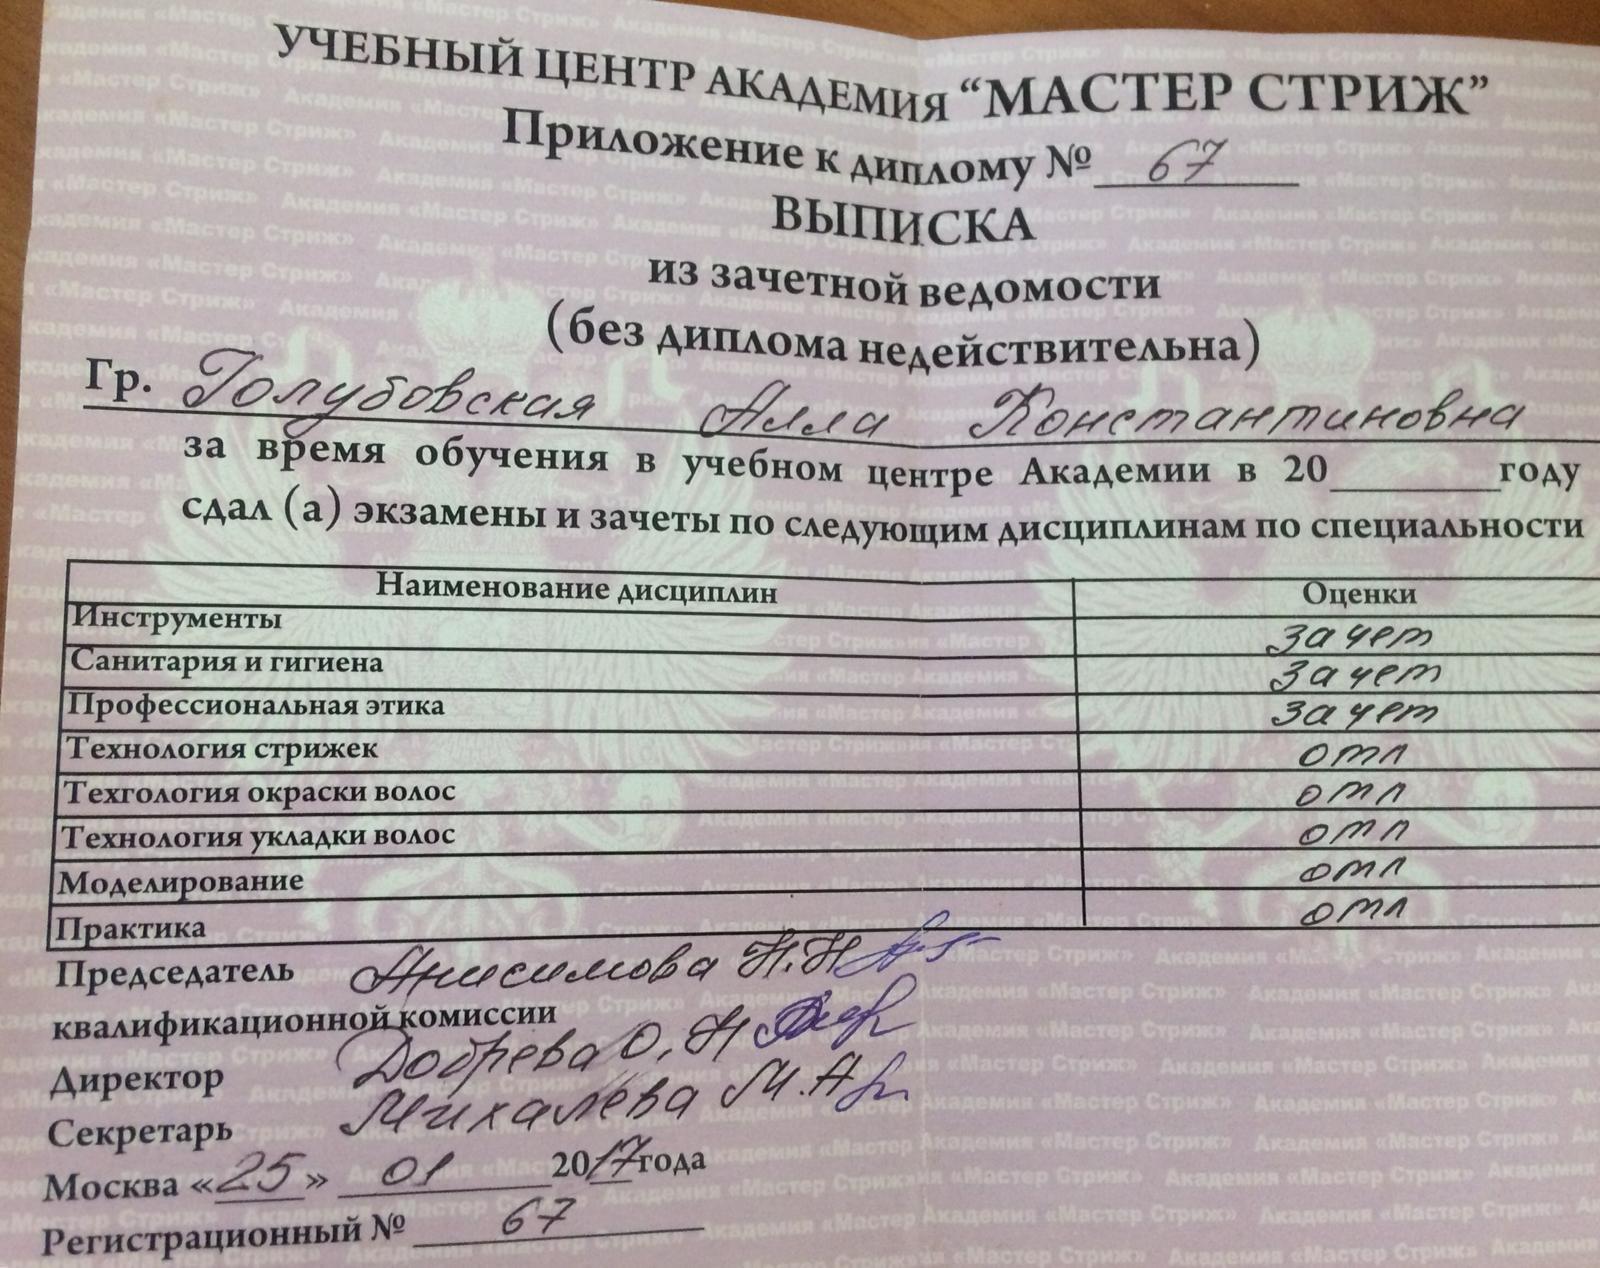 УЧЕБНЫЙ ЦЕНТР АКАДЕМИЯ “МАСТЕР СТРИЖ”
Приложение к диплому № 67
ВЫПИСКА
из зачетной ведомости
(без диплома недействительна)
Гр. Голубовская Алла Константиновна
за время обучения в учебном центре Академии в 20______году
сдал (а) экзамены и зачеты по следующим дисциплинам по специальности
Наименование дисциплин Оценки
Инструменты зачет
Санитария и гигиена зачет
Профессиональная этика зачет
Технология стрижек отл
Техгология окраски волос отл
Технология укладки волос отл
Моделирование отл
Практика отл
Председатель Анисимова Н.Н
квалификационной комиссии
Директор Добрева О.Н
Секретарь Михалева М.А
Москва «25» 01 2017года
Регистрационный № 67